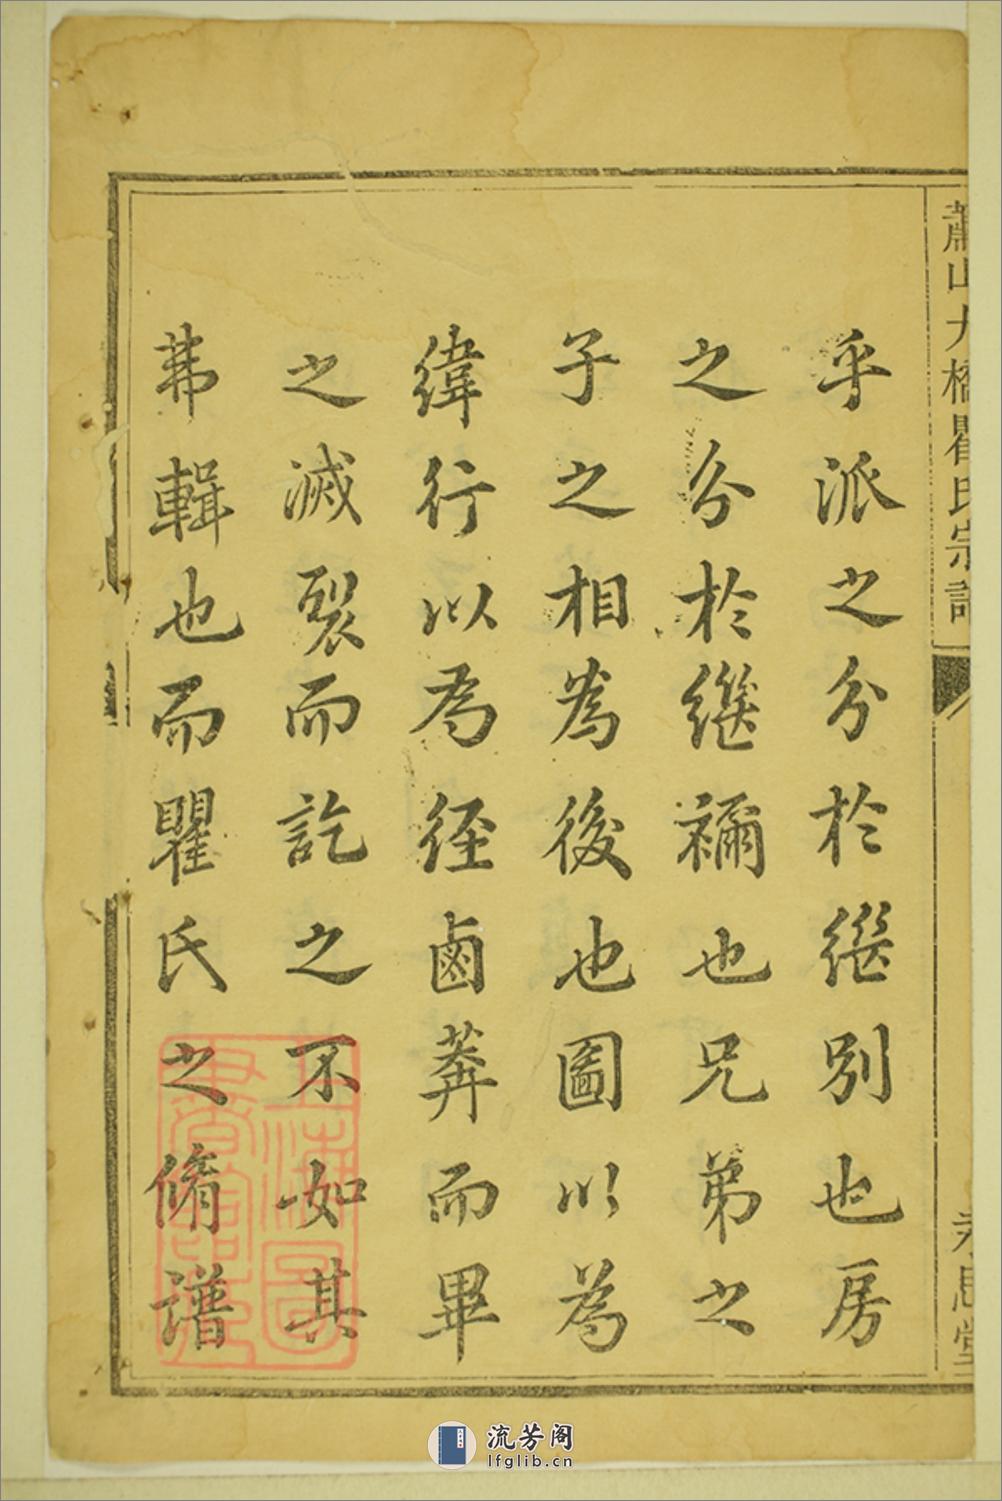 蕭山大橋瞿氏宗譜
永思堂
乎派之分於繼別也房
之分於繼禰也兄弟之
子之相為後也圖以為
緯行以為徑鹵莽而畢
之滅裂而訖之不如其
弗輯也而瞿氏之脩譜
上海圖書館藏
流芳阁
lfglib.cn